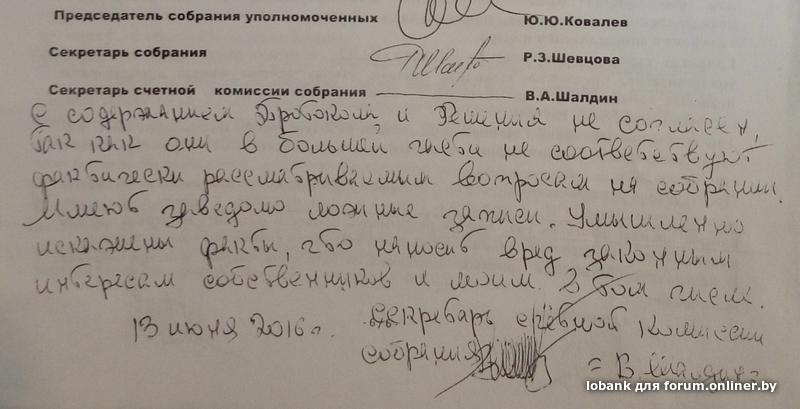 Председатель собрания уполномоченных Ю.Ю.Ковалев
Секретарь собрания Р.З.Шевцова
Секретарь счетной комиссии собрания В.А.Шалдин
С содержанием Протокола и Решения не согласен,
так как они в большей части не соответствуют
фактически рассматриваемым вопросам на собрании.
Имеют заведомо ложные записи. Умышленно
искажены факты, что наносит вред законным
интересам собственников и моим. В том числе.
13 июня 2016г. Секретарь счётной комиссии
собрания = В.Шалдин =
lobank для forum.onliner.by